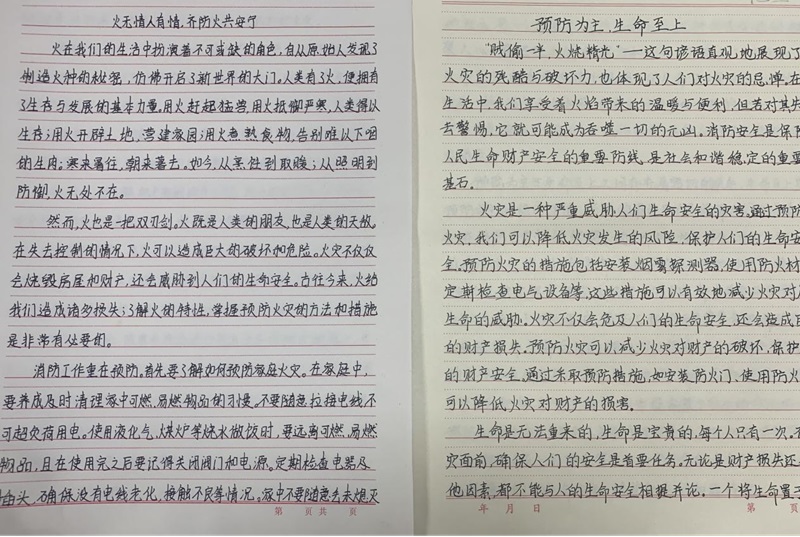 火无情人有情,齐防火共安宁
火在我们的生活中扮演着不可或缺的角色,自从原始人发现了
制造火种的秘密,仿佛开启了新世界的大门。人类有了火,便拥有
了生存与发展的基本力量,用火赶起猛兽,用火抵御严寒,人类得以
生存;用火开辟土地,营建家园;用火煮熟食物,告别难以下咽
的生肉;寒来暑往,朝来暮去。如今,从烹饪到取暖;从照明到
防御,火无处不在。
然而,火也是一把双刃剑。火既是人类的朋友,也是人类的天敌。
在失去控制的情况下,火可以造成巨大的破坏和危险。火灾不仅仅
会烧毁房屋和财产,还会威胁到人们的生命安全。古往今来,火给
我们造成诸多损失;了解火的特性,掌握预防火灾的方法和措施
是非常有必要的。
消防工作重在预防。首先要了解如何预防家庭火灾。在家庭中,
要养成及时清理家中可燃、易燃物品的习惯。不要随意拉接电线,不
可超负荷用电。使用液化气、煤炉等烧水做饭时,要远离可燃、易燃
物品,且在使用完之后要记得关闭阀门和电源。定期检查电器及
插头,确保没有电线老化,接触不良等情况。家中不要随意丢未熄灭
第 页 共 页
预防为主,生命至上
“贼偷一半,火烧精光”一这句谚语直观地展现了
火灾的残酷与破坏力,也体现了人们对火灾的忌惮。在
生活中,我们享受着火焰带来的温暖与便利,但若对其失
去警惕,它就可能成为吞噬一切的元凶。消防安全是保障
人民生命财产安全的重要防线,是社会和谐稳定的重要
基石。
火灾是一种严重威胁人们生命安全的灾害,通过预防
火灾,我们可以降低火灾发生的风险,保护人们的生命安
全。预防火灾的措施包括安装烟雾探测器、使用防火材
定期检查电气设备等,这些措施可以有效地减少火灾对人
生命的威胁。火灾不仅会危及人们的生命安全,还会造成巨
的财产损失。预防火灾可以减少火灾对财产的破坏,保护
的财产安全。通过采取预防措施,如安装防火门、使用防火
可以降低火灾对财产的损害。
生命是无法重来的,生命是宝贵的,每个人只有一次,在
灾面前,确保人们的安全是首要任务。无论是财产损失还
他因素,都不能与人的生命安全相提并论。一个将生命置于
年 月 日
第 页